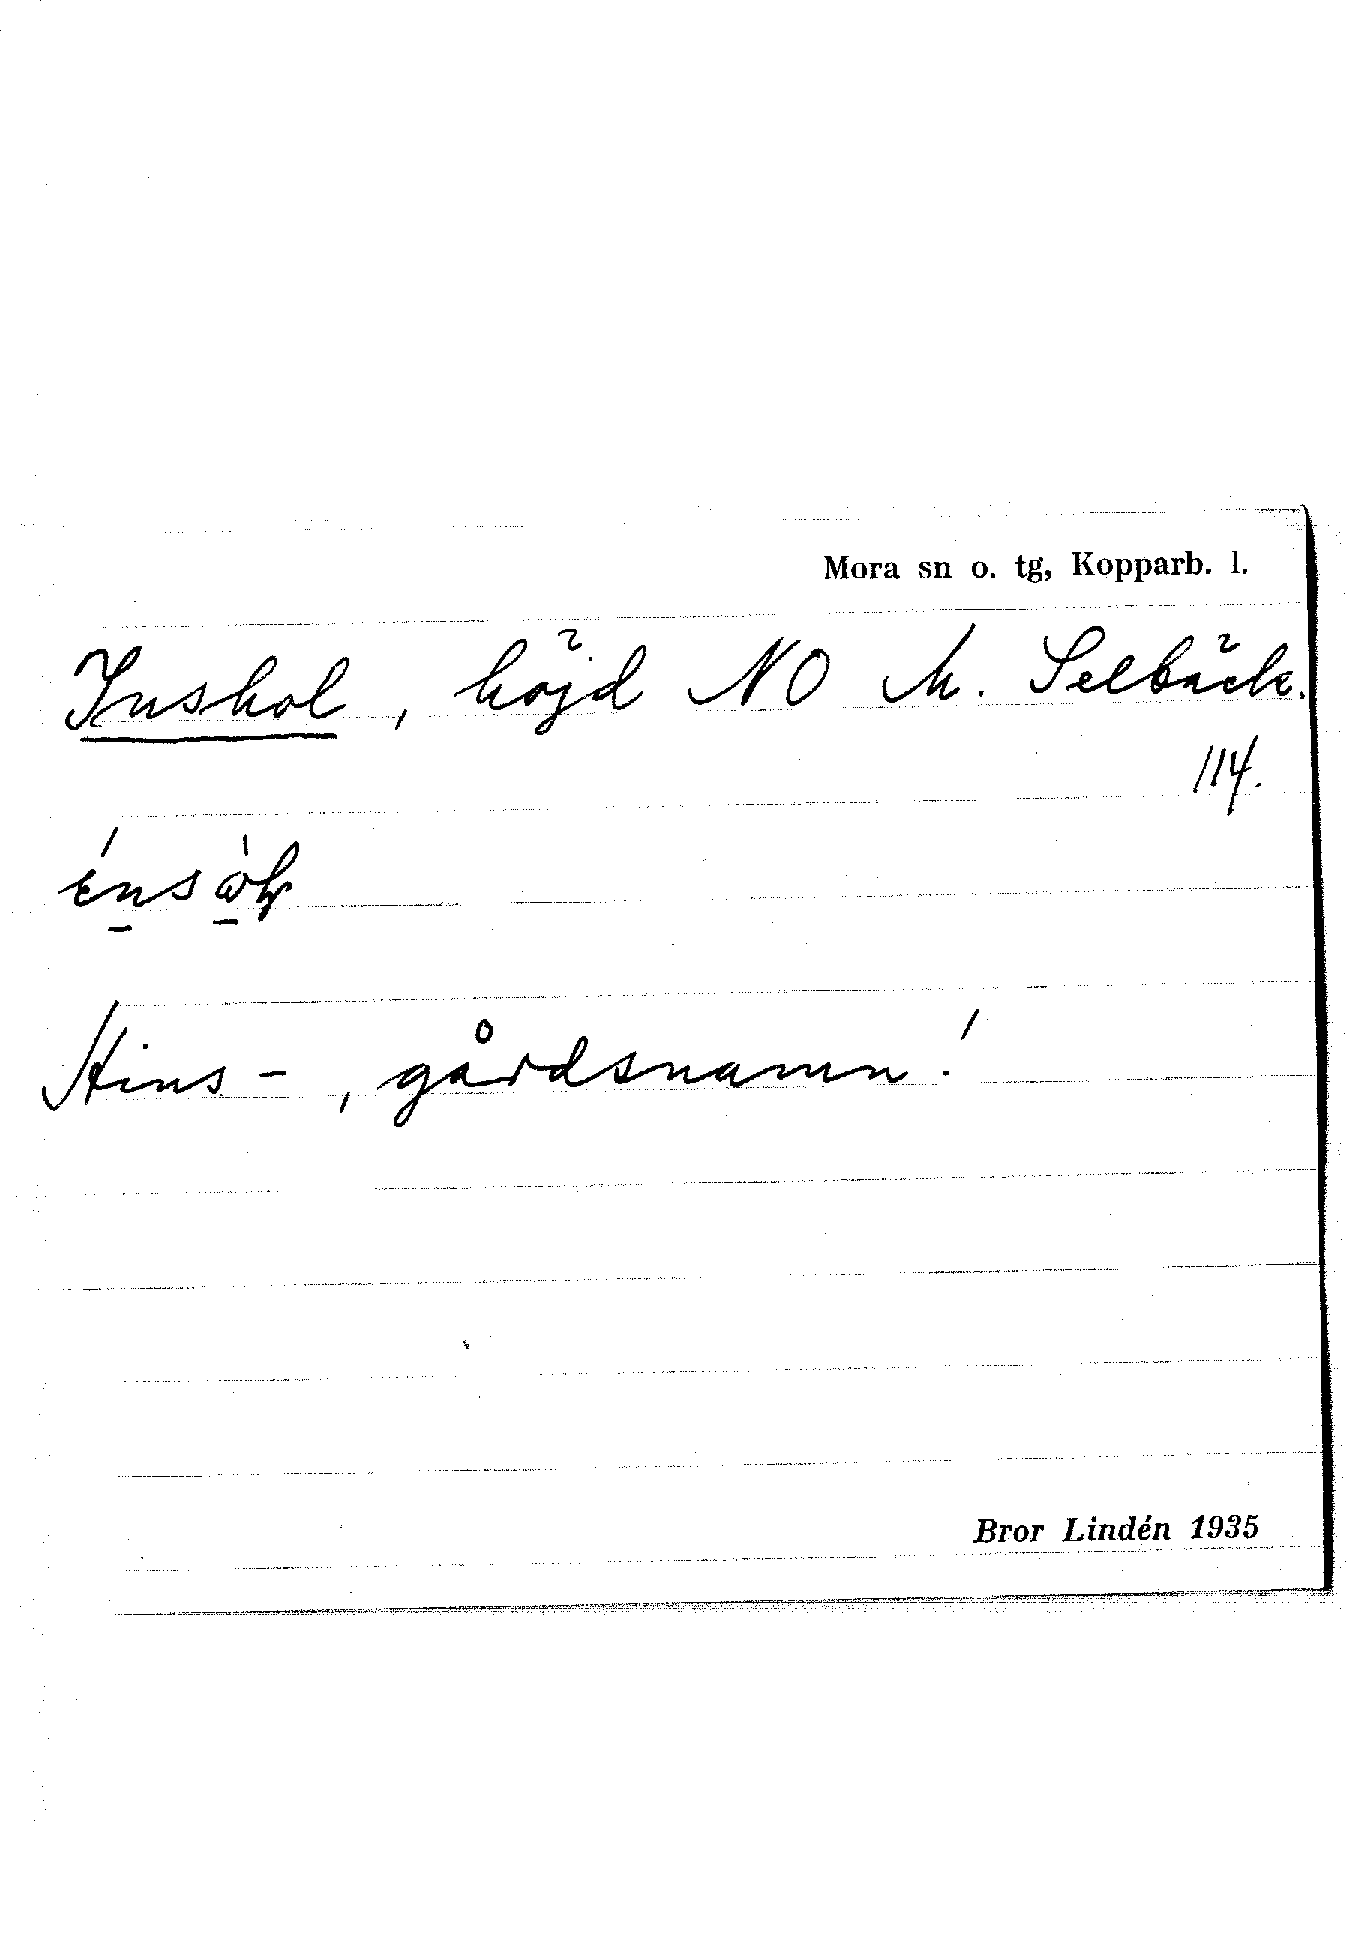 Mora sn o. tg, Kopparb. l.
Inshol, höjd NO M. Selbäck.
114.
Hins-, gårdsnamn!
Bror Lindén 1935